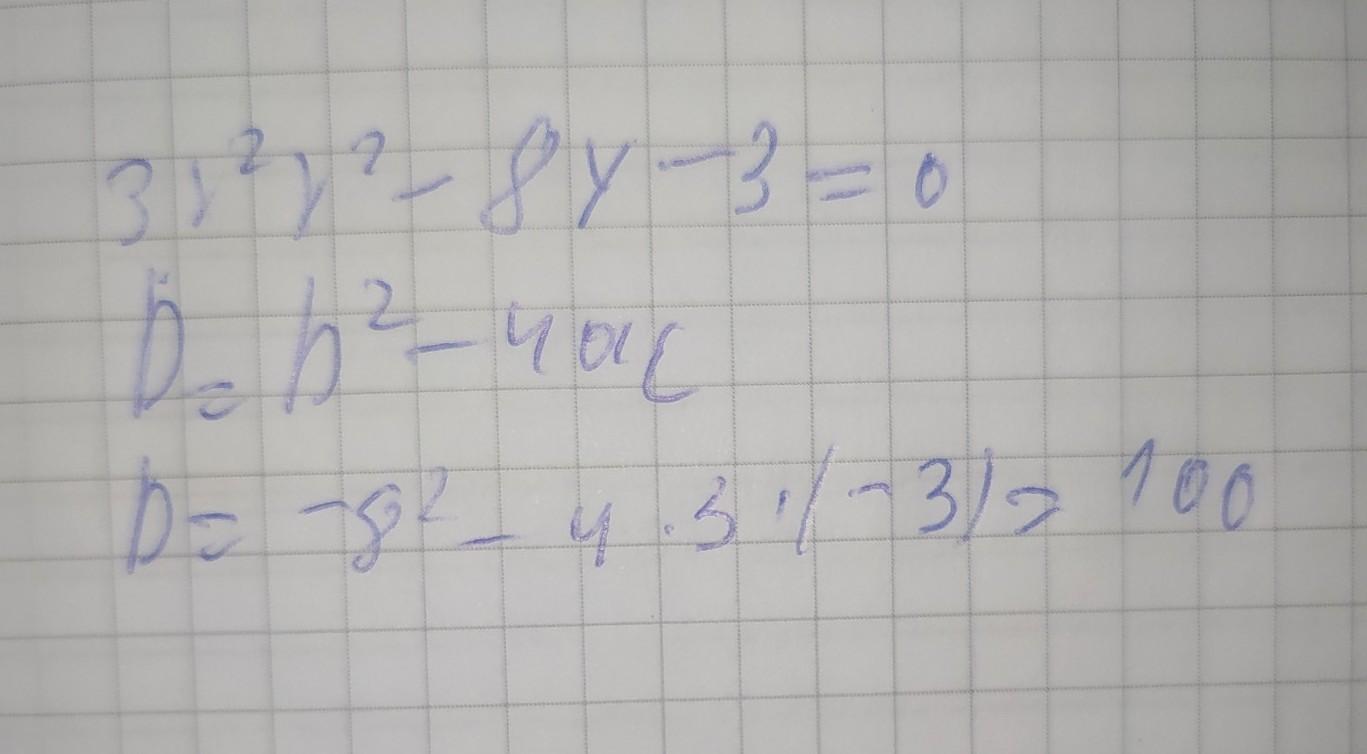 3y²y² - 8y - 3 = 0
D = b² - 4ac
D = -8² - 4 · 3 · (-3) = 100